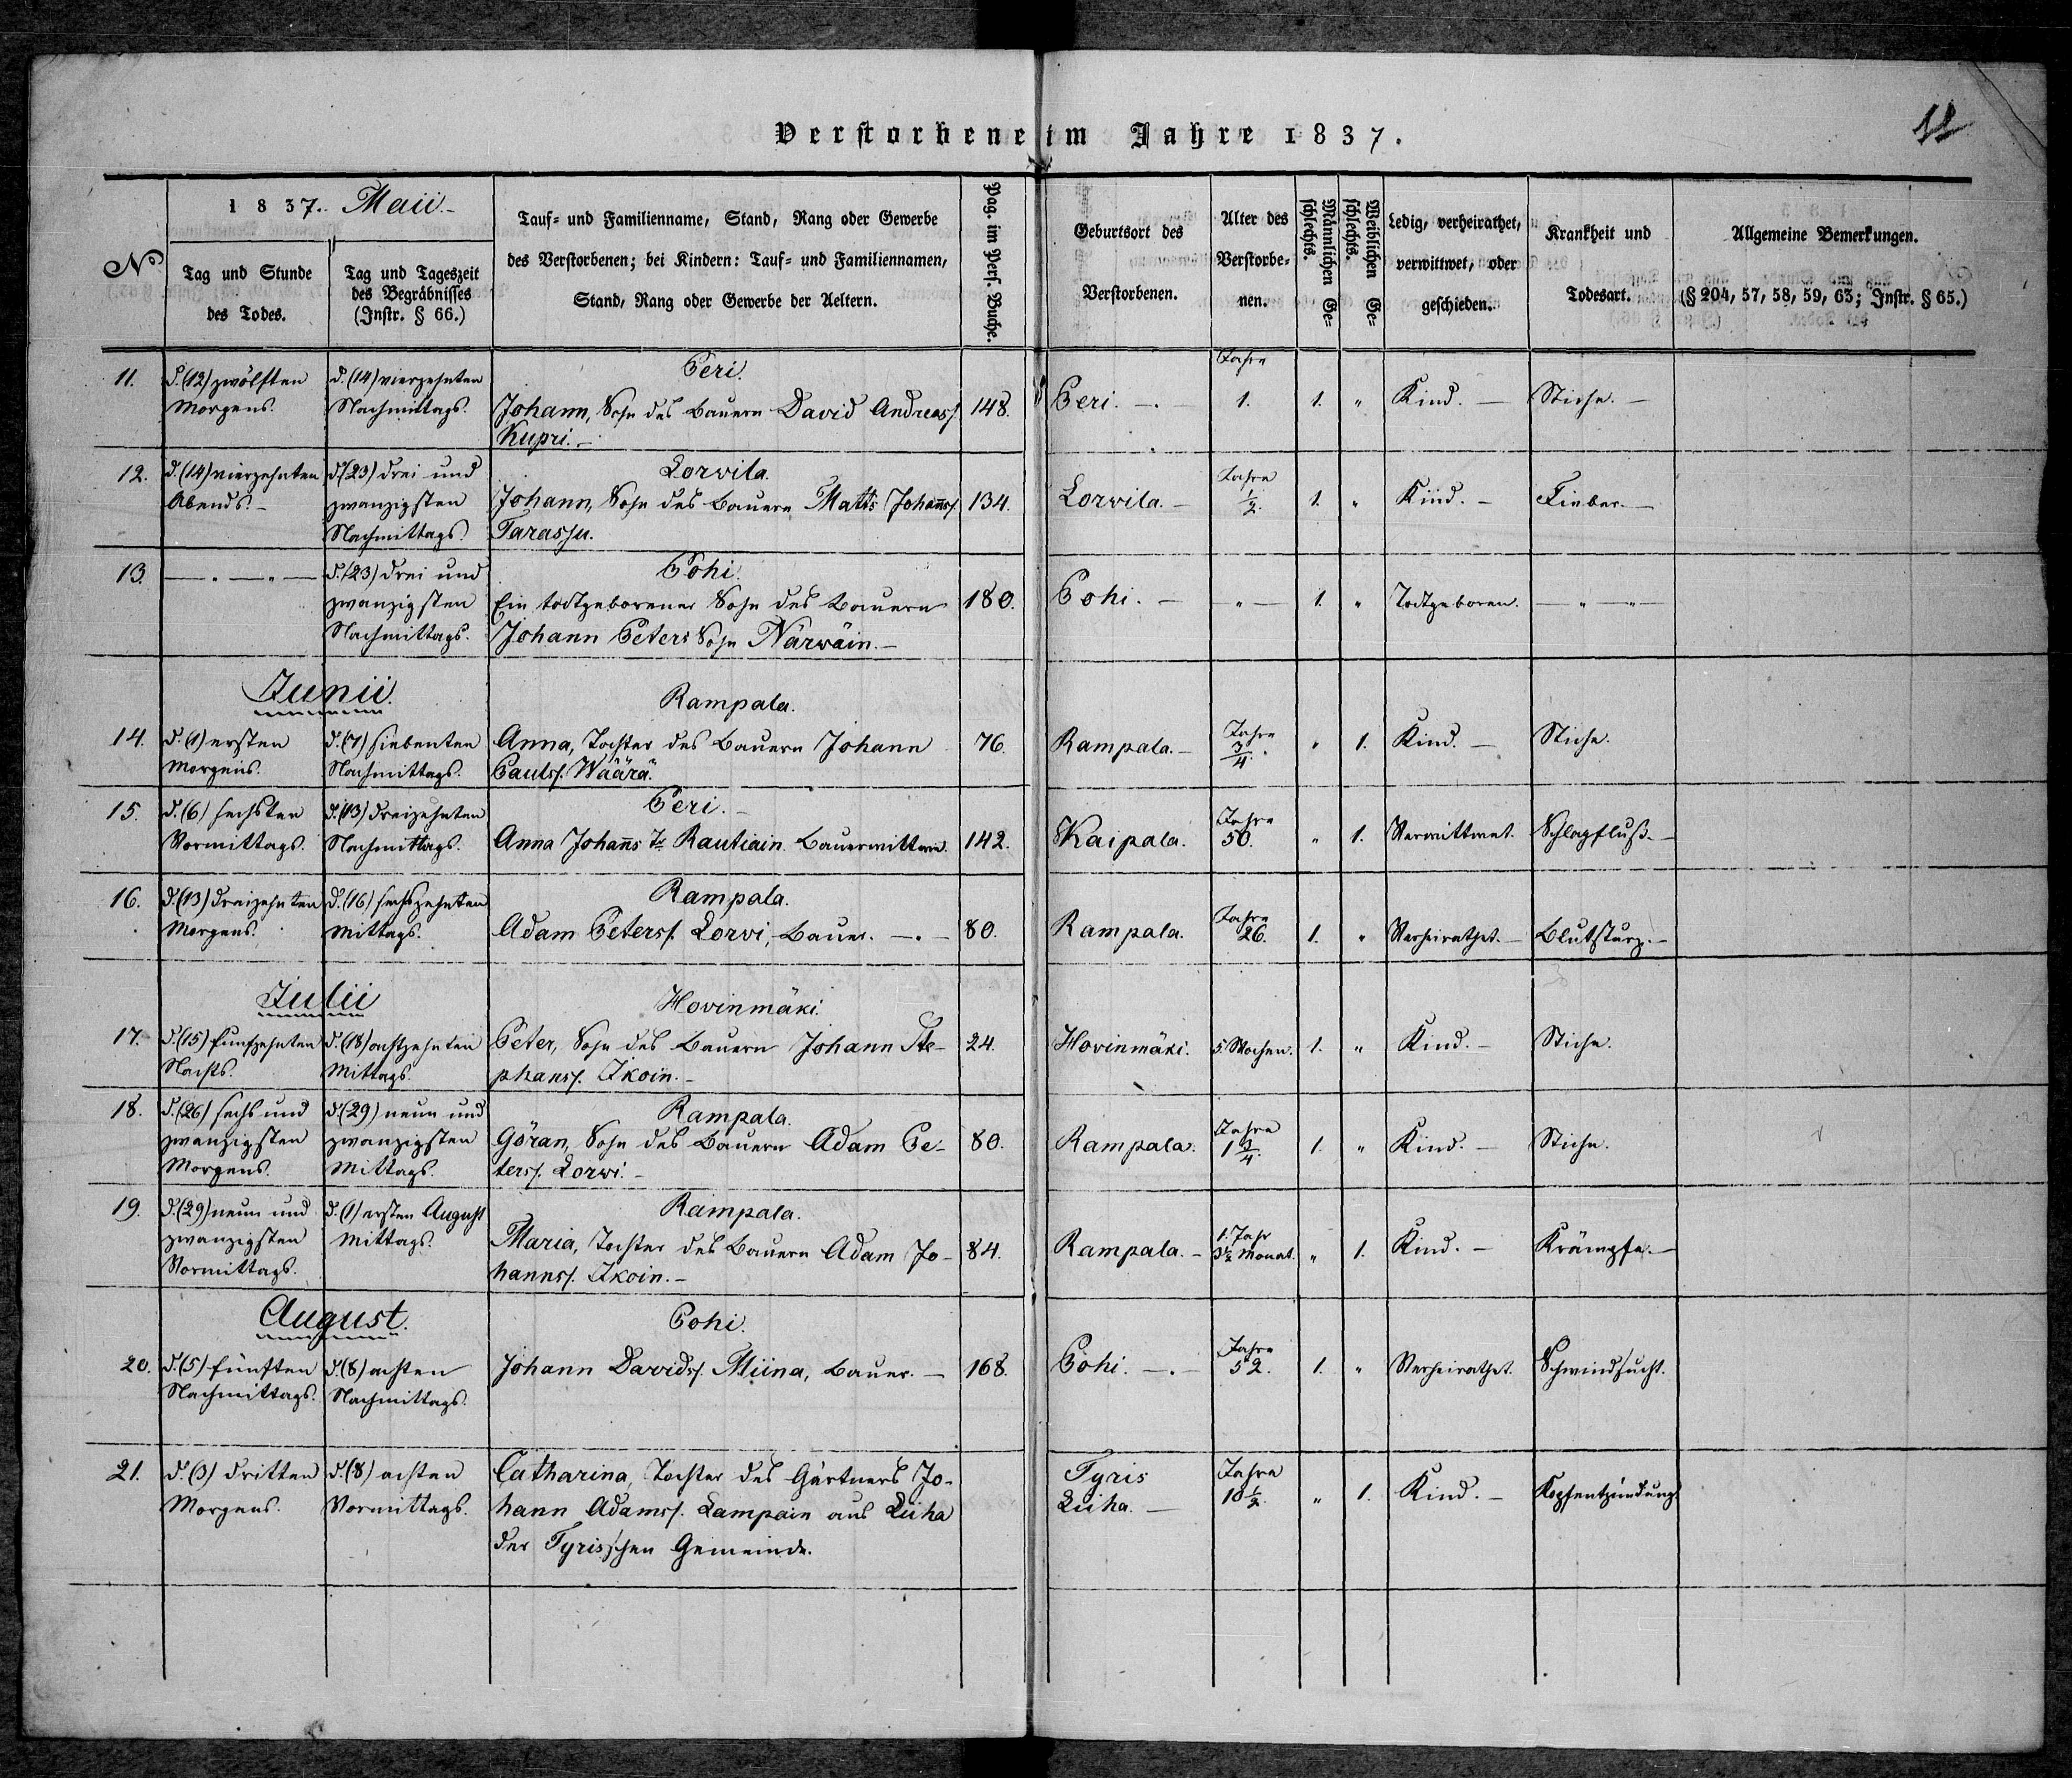 Verstorbene im Jahre 1837.
11
No
1837. Maii.
Tag und Stunde des Todes.
Tag und Tageszeit des Begräbnisses (Instr. § 66.)
Tauf- und Familienname, Stand, Rang oder Gewerbe
des Verstorbenen; bei Kindern: Tauf- und Familiennamen,
Stand, Rang oder Gewerbe der Aeltern.
Pag. im Pers. Buche.
Geburtsort des Verstorbenen.
Alter des Verstorbe-nen.
Männlichen Ge-schlechts.
Weiblichen Ge-schlechts.
Ledig, verheirathet, verwittwet, oder geschieden.
Krankheit und Todesart.
Allgemeine Bemerkungen.
(§ 204, 57, 58, 59, 63; Instr. § 65.)
Peri.
11. d. (12) zwölften d. (14) vierzehnten Jahre
Morgens. Nachmittags. Johann, Sohn des Bauern David Andreass. 148. Peri. — 1. 1. " Kind. — Stiche. —
Kupri. —
Lorvila.
12. d. (14) vierzehnten d. (23) drei und Jahre
Abends. — zwanzigsten Johann, Sohn des Bauern Matts Johañs. 134. Lorvila. — 1/2. 1. " Kind. — Fieber. —
Nachmittags. Tarassu.
Pohi.
13. — " — " — d. (23) drei und
zwanzigsten Ein todtgeborener Sohn des Bauern 180. Pohi. — " — 1. " Todtgeboren. — " — " —
Nachmittags. Johann Peters Sohn Närwäin. —
Junii.
Rampala.
14. d. (1) ersten d. (7) siebenten Anna, Tochter des Bauern Johann 76. Rampala. — Jahre 3/4. " 1. Kind. — Stiche.
Morgens. Nachmittags. Pauls. Wäärä.
Peri. —
15. d. (6) sechsten d. (13) dreizehnten Jahre
Vormittags. Nachmittags. Anna Johañs Tr. Rautiain. Bauerwittwe. 142. Kaipala. 50. " 1. Verwittwet. Schlagfluß. —
Rampala.
16. d. (13) dreizehnten d. (16) sechszehnten Jahre
Morgens. Mittags. Adam Peterss. Lorvi, Bauer. — 80. Rampala. 26. 1. " Verheirathet. — Blutsturz. —
Julii
Hovinmäki.
17. d. (15) funfzehnten d. (18) achtzehnten Peter, Sohn des Bauern Johann Ste- 24. Hovinmäki. 5 Wochen. 1. " Kind. — Stiche.
Nachts. Mittags. phanss. Ikoin. —
Rampala.
18. d. (26) sechs und d. (29) neun und Jahre
zwanzigsten zwanzigsten Göran, Sohn des Bauern Adam Pe- 80. Rampala. 1 3/4. 1. " Kind. — Stiche.
Morgens. Mittags. terss. Lorwi. —
Rampala.
19. d. (29) neun und d. (1) ersten August 1. Jahr
zwanzigsten Mittags. Maria, Tochter des Bauern Adam Jo- 84. Rampala. — 3 1/2 Monat. " 1. Kind. — Krämpfe. —
Vormittags. hannss. Ikoin. —
August.
Pohi.
20. d. (5) fünften d. (8) achten Johann Davids. Miina, Bauer. — 168. Pohi. — Jahre 52. 1. " Verheirathet. Schwindsucht.
Nachmittags. Nachmittags.
21. d. (3) dritten d. (8) achten Catharina, Tochter des Gärtners Jo- Tyris Jahre
Morgens. Vormittags. hann Adamss. Lampain aus Liiha Liiha. — 10 1/2. " 1. Kind. — Kopfentzündung.
der Tyrisschen Gemeinde.